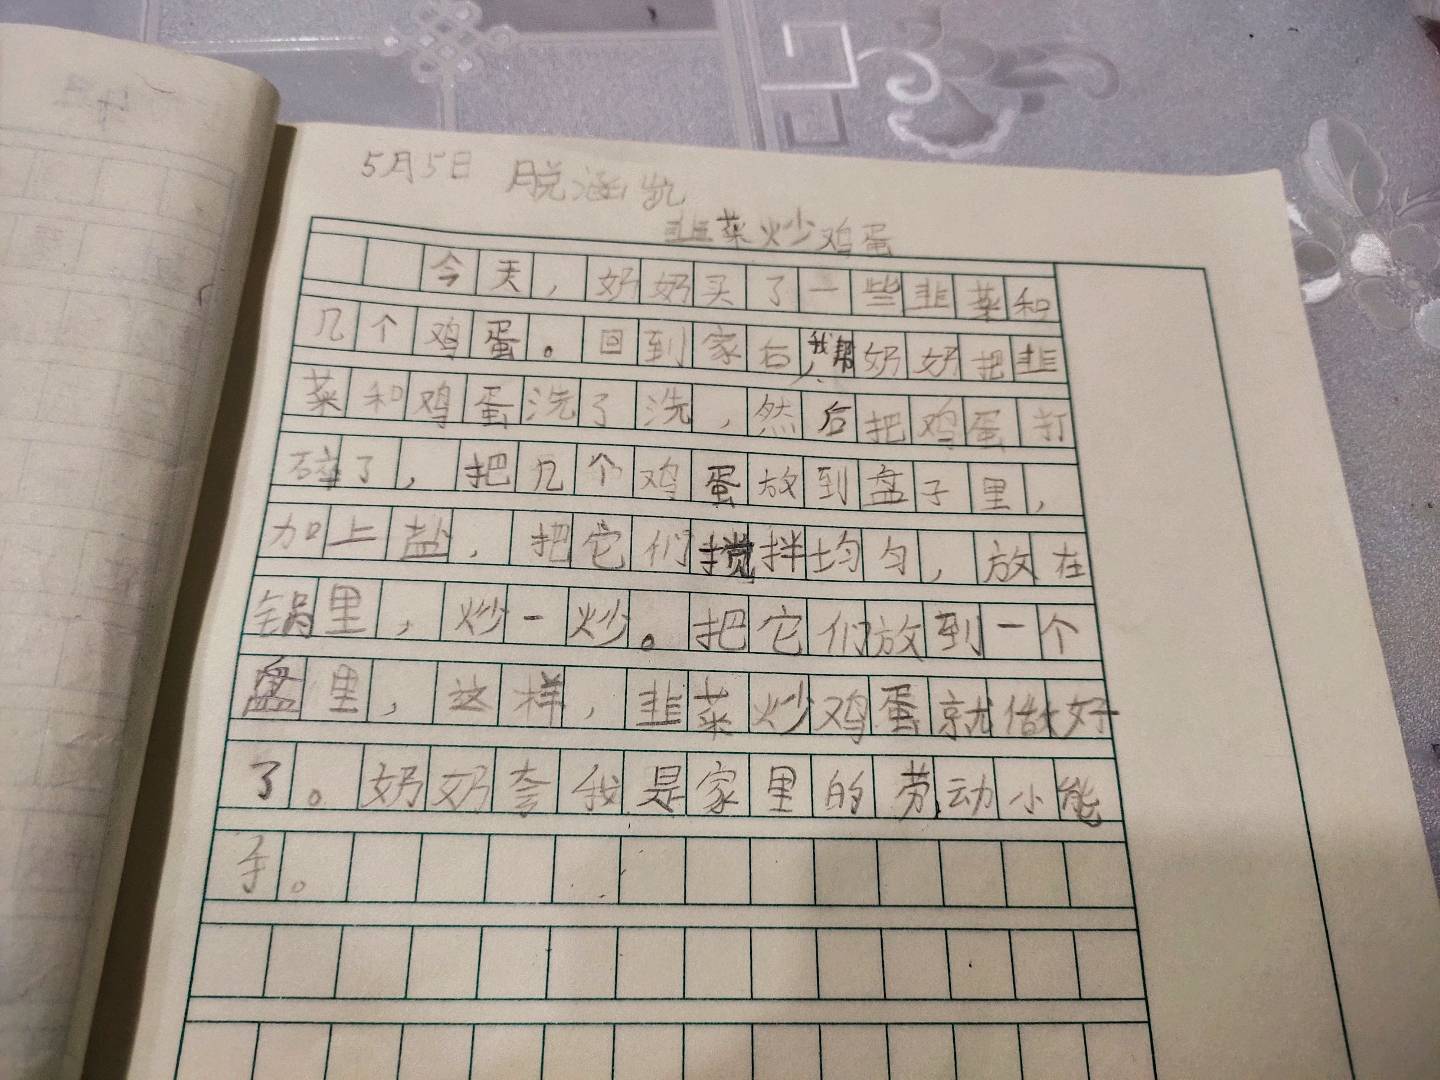 5月5日 脱涵凯
韭菜炒鸡蛋
今天，奶奶买了一些韭菜和
几个鸡蛋。回到家后，我帮奶奶把韭
菜和鸡蛋洗了洗，然后把鸡蛋打
碎了，把几个鸡蛋放到盘子里，
加上盐，把它们搅拌均匀，放在
锅里，炒一炒。把它们放到一个
盘里，这样，韭菜炒鸡蛋就做好
了。奶奶夸我是家里的劳动小能
手。